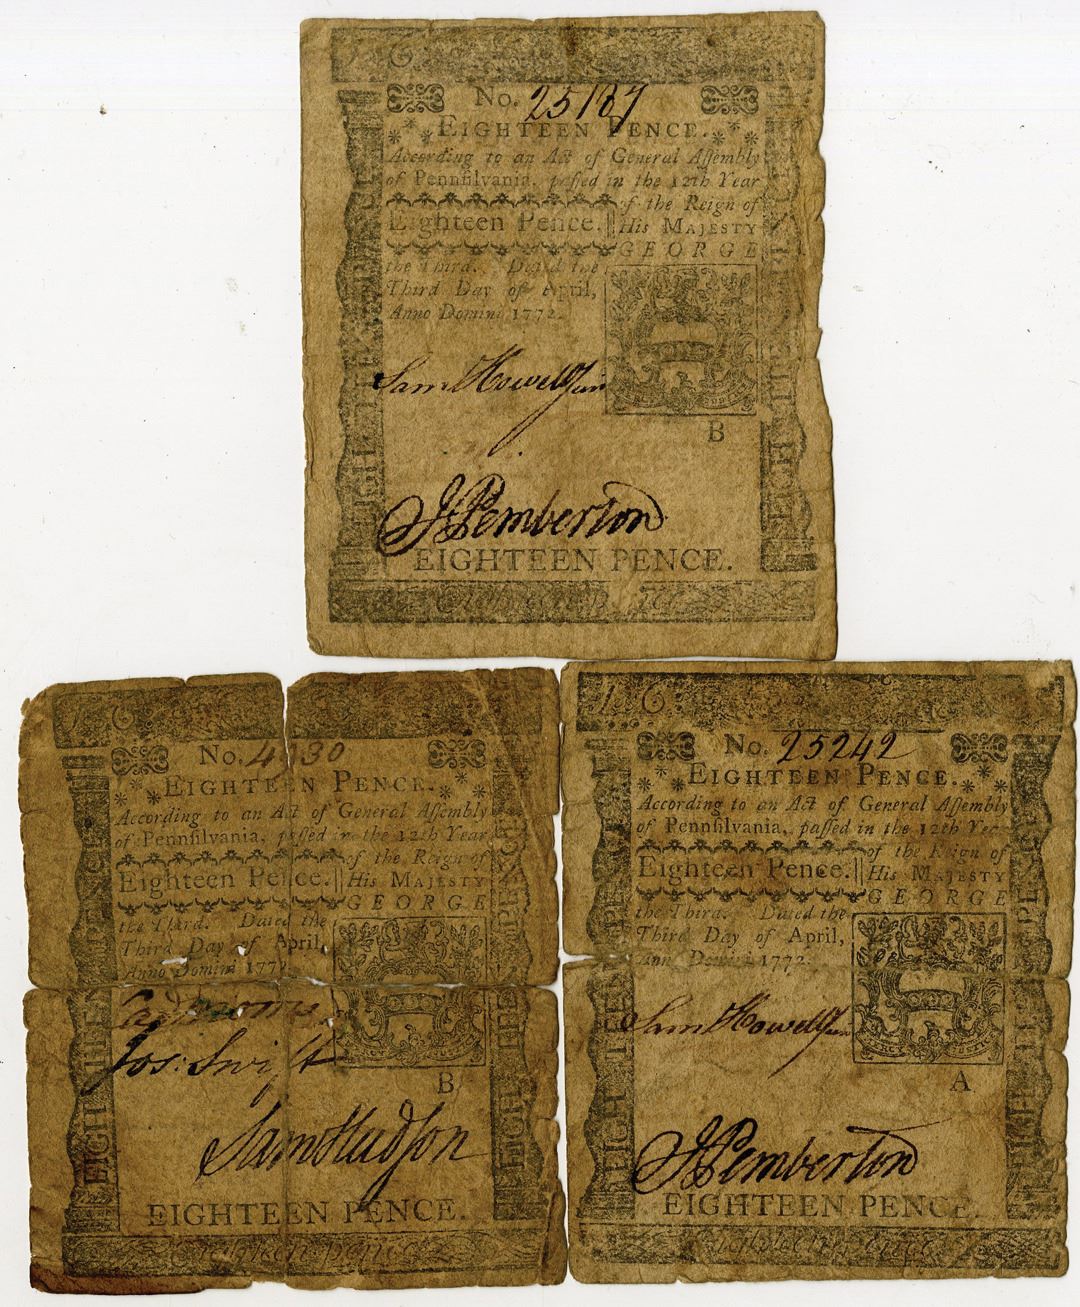 No. 25187
EIGHTEEN PENCE.
According to an Act of General Aſſembly
of Pennſilvania, paſſed in the 12th Year
of the Reign of
Eighteen Pence. His MAJESTY
GEORGE
the Third. Dated the
Third Day of April,
Anno Domini 1772.
Saml Howell Jun
B
J Pemberton
EIGHTEEN PENCE.
No. 4030
EIGHTEEN PENCE.
According to an Act of General Aſſembly
of Pennſilvania, paſſed in the 12th Year
of the Reign of
Eighteen Pence. His MAJESTY
GEORGE
the Third. Dated the
Third Day of April,
Anno Domini 177
Jos: Swift
B
Sam Hudſon
EIGHTEEN PENCE.
Eighteen pence
1 6
No. 25242
EIGHTEEN PENCE.
According to an Act of General Aſſembly
of Pennſilvania, paſſed in the 12th Year
of the Reign of
Eighteen Pence. His MAJESTY
GEORGE
the Third. Dated the
Third Day of April,
Anno Domini 1772.
Saml Howell Jun
A
J Pemberton
EIGHTEEN PENCE.